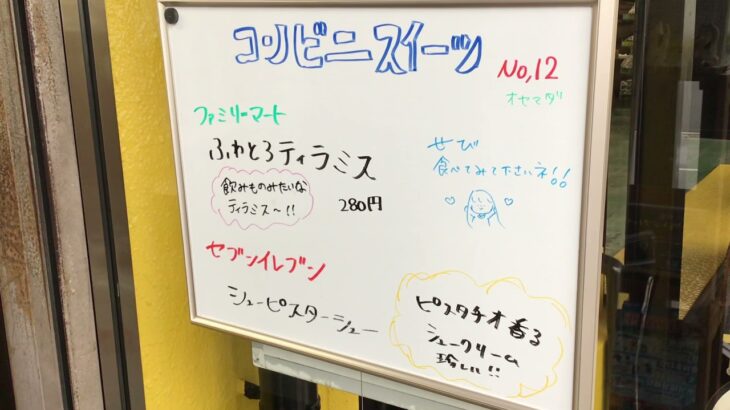 コンビニスイーツ
No,12
オヤマダ
ファミリーマート
ふわとろティラミス
飲みものみたいな
ティラミス〜!!
280円
ぜひ
食べてみて下さいネ!!
セブンイレブン
シューピスターシュー
ピスタチオ香る
シュークリーム
珍しい!!